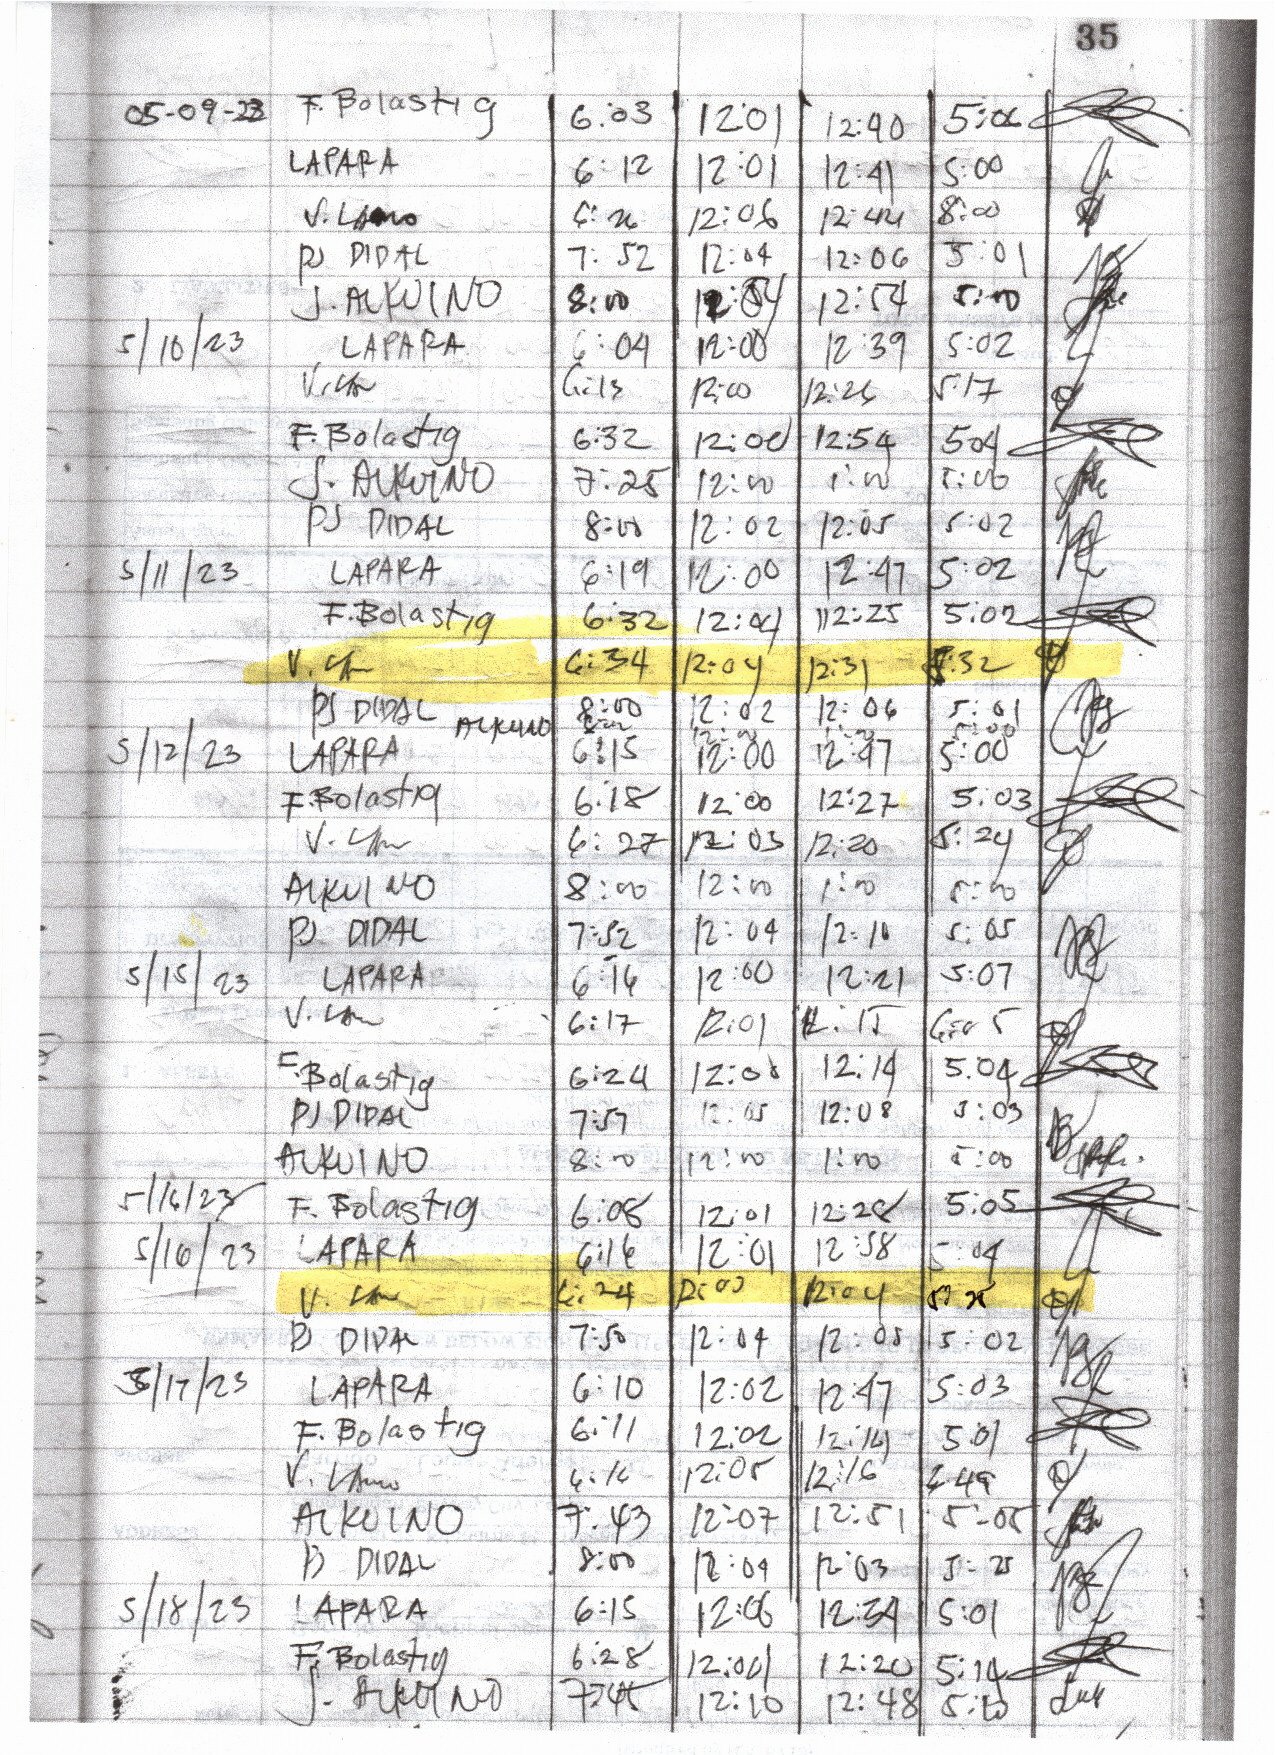 35
05-09-23 F. Bolastig 6:03 12:01 12:40 5:06
LAPARA 6:12 12:01 12:41 5:00
V. 6:26 12:06 12:44 8:00
PJ DIDAL 7:52 12:04 12:06 5:01
J. ALKUINO 8:00 12:54 5:00
5/10/23 LAPARA 6:04 12:00 12:39 5:02
V. 6:13 12:00 12:26 5:17
F. Bolastig 6:32 12:00 12:54 504
J. ALKUINO 7:25 12:00 1:00 5:00
PJ DIDAL 8:00 12:02 12:05 5:02
5/11/23 LAPARA 6:19 12:00 12:47 5:02
F. Bolastig 6:32 12:01 12:25 5:02
V. 6:34 12:04 12:31 5:32
PJ DIDAL 8:00 12:02 12:06 5:01
ALKUINO 12:00 1:00 5:00
5/12/23 LAPARA 6:15 12:00 12:47 5:00
F. Bolastig 6:18 12:00 12:27 5:03
V. 6:27 12:03 12:20 5:24
ALKUINO 8:00 12:00 1:00 5:00
PJ DIDAL 7:52 12:04 12:10 5:05
5/15/23 LAPARA 6:16 12:00 12:21 5:07
V. 6:17 12:01 12:15 6:05
F. Bolastig 6:24 12:00 12:14 5:04
PJ DIDAL 7:57 12:05 12:08 5:03
ALKUINO 8:00 12:00 1:00 5:00
5/16/23 F. Bolastig 6:08 12:01 12:28 5:05
5/16/23 LAPARA 6:16 12:01 12:58 5:04
V. 6:24 12:03 12:04
PJ DIDAL 7:50 12:04 12:05 5:02
5/17/23 LAPARA 6:10 12:02 12:47 5:03
F. Bolastig 6:11 12:02 12:14 5:01
V. 6:16 12:05 12:16 6:49
ALKUINO 7:43 12:07 12:51 5:05
PJ DIDAL 8:00 12:04 12:03 5:25
5/18/23 LAPARA 6:15 12:06 12:34 5:01
F. Bolastig 6:28 12:01 12:20 5:14
J. ALKUINO 7:45 12:10 12:48 5:10